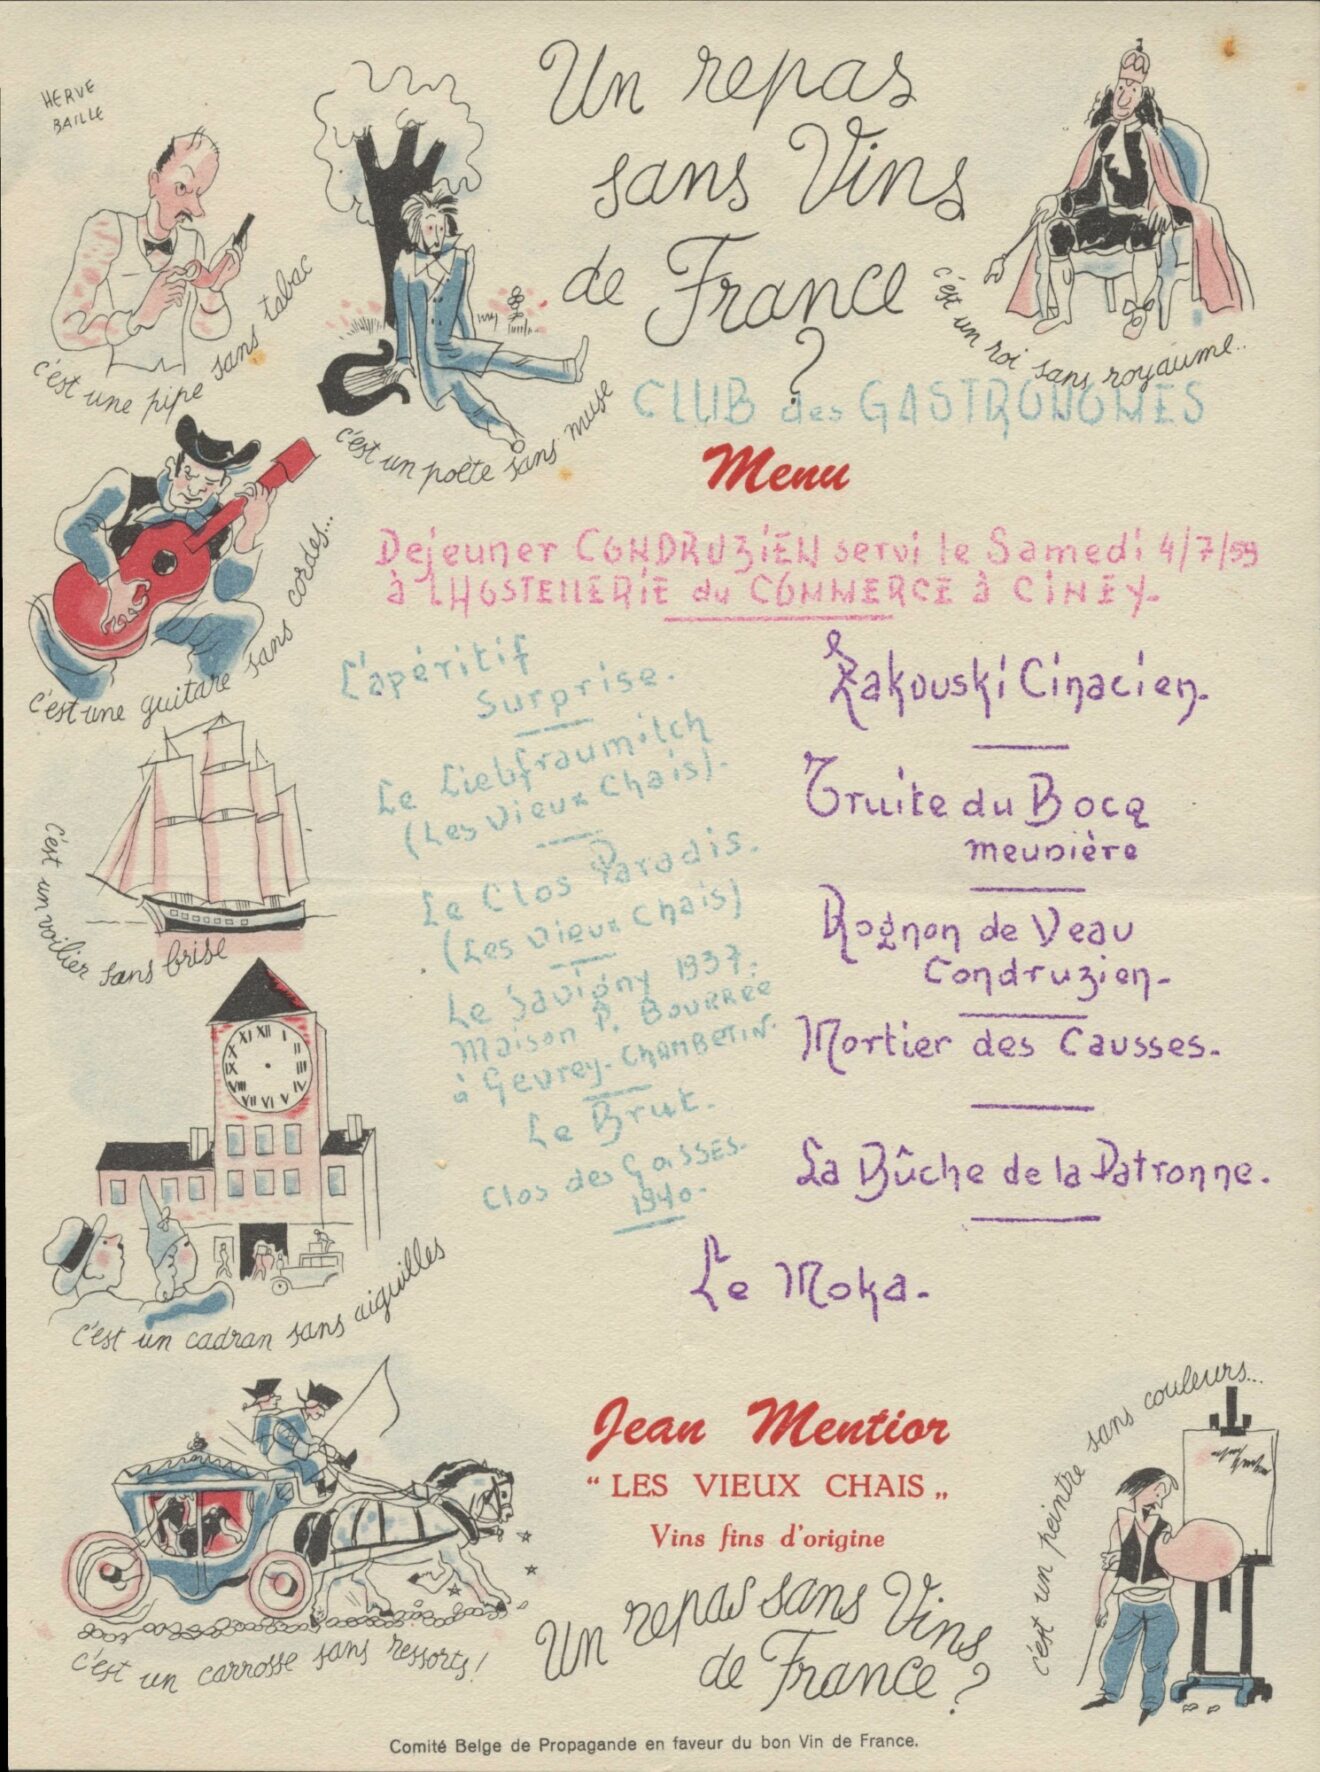 HERVE
BAILLE
Un repas
sans Vins
de France
?
c'est une pipe sans tabac
c'est un poète sans muse
c'est un roi sans royaume..
CLUB des GASTRONOMES
Menu
Dejeuner CONDRUZIEN servi le Samedi 4/7/59
à LHOSTELLERIE du COMMERCE à CINEY-
c'est une guitare sans cordes...
L'apéritif
Surprise.
Le Liebfraumilch
(Les Vieux Chais).
Le Clos Paradis.
(Les Vieux Chais)
Le Savigny 1937.
Maison P. BOURRÉE
à Gevrey-CHAMBETIN.
Le Brut.
Clos des GOISSES.
1940-
Zakouski Cinacien.
Truite du Bocq
meunière
Rognon de Veau
Condruzien-
Mortier des Causses.
La Bûche de la Patronne.
Le Moka.
c'est un voilier sans brise
c'est un cadran sans aiguilles
c'est un carrosse sans ressorts!
Jean Mentior
“LES VIEUX CHAIS„
Vins fins d'origine
c'est un peintre sans couleurs...
Un repas sans Vins
de France?
Comité Belge de Propagande en faveur du bon Vin de France.